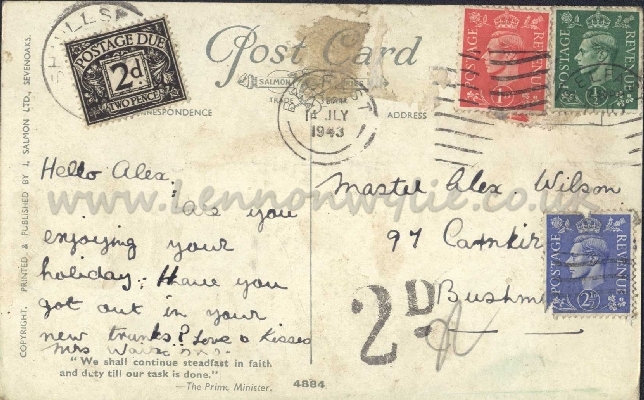 POSTAGE DUE
2d
TWO PENCE
Post Card
SALMON
TRADE
CORRESPONDENCE
ADDRESS
BELFAST
14 JLY
1943
POSTAGE REVENUE
1D
POSTAGE REVENUE
½D
COPYRIGHT, PRINTED & PUBLISHED BY J. SALMON LTD., SEVENOAKS.
www.Lennonwylie.co.uk
Hello Alex.
are you
enjoying your
holiday. Have you
got out in your
new trunks? Love & Kisses
Mrs
Master Alex. Wilson
97
Bushm
POSTAGE REVENUE
2½D
2D
"We shall continue steadfast in faith
and duty till our task is done."
—The Prime Minister.
4884